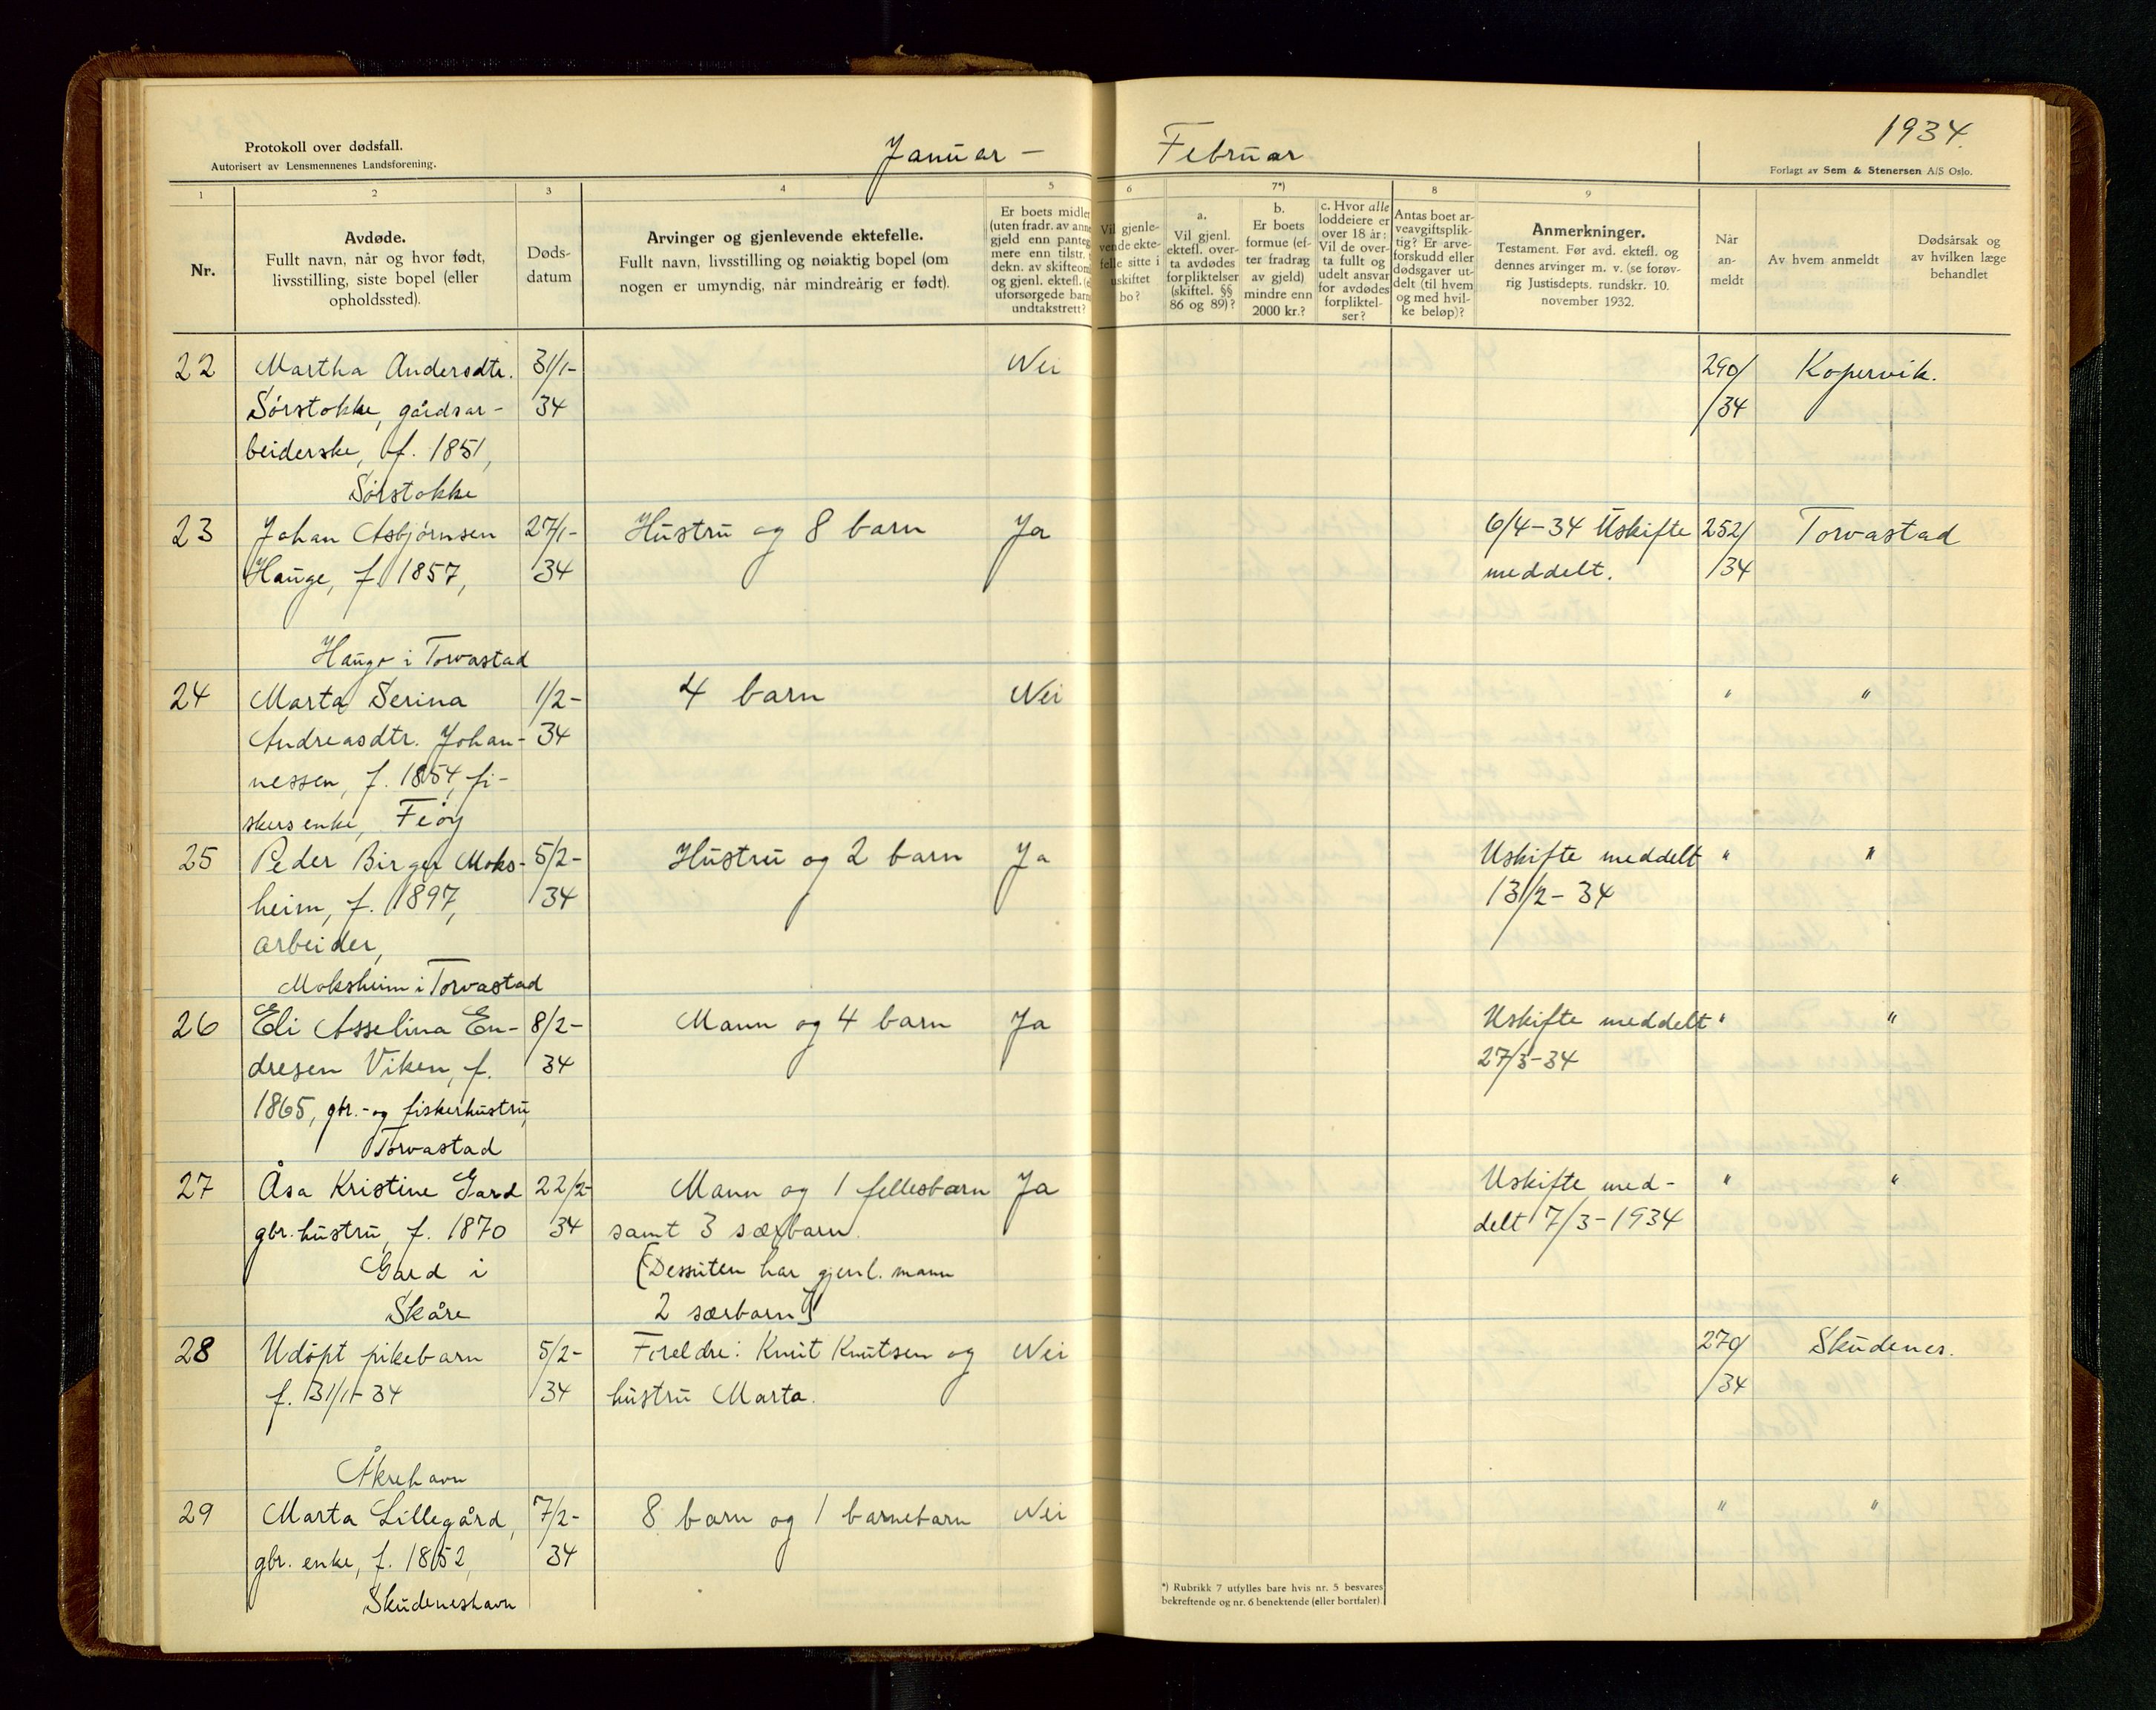 Protokoll over dødsfall.
Autorisert av Lensmennenes Landsforening.
Januar - Februar
1934.
Forlagt av Sem & Stenersen A/S Oslo.
1 2 3 4 5 6 7*) 8 9
Nr.
Avdøde.
Fullt navn, når og hvor født,
livsstilling, siste bopel (eller
opholdssted).
Døds-
datum
Arvinger og gjenlevende ektefelle.
Fullt navn, livsstilling og nøiaktig bopel (om
nogen er umyndig, når mindreårig er født).
Er boets midler
(uten fradr. av
gjeld enn
mere enn tilstr.
dekn. av
og gjenl. ektefl.
uforsørgede
undtakstrett?
Vil gjenle-
vende ekte-
felle sitte i
uskiftet
bo?
a.
Vil gjenl.
ektefl. over-
ta avdødes
forpliktelser
(skiftel. §§
86 og 89)?
b.
Er boets
formue (ef-
ter fradrag
av gjeld)
mindre enn
2000 kr.?
c. Hvor alle
loddeiere er
over 18 år:
Vil de over-
ta fullt og
udelt ansvar
for avdødes
forpliktel-
ser?
Antas boet ar-
veavgiftsplik-
tig? Er arve-
forskudd eller
dødsgaver ut-
delt (til hvem
og med hvil-
ke beløp)?
Anmerkninger.
Testament. Før avd. ektefl. og
dennes arvinger m. v. (se forøv-
rig Justisdepts. rundskr. 10.
november 1932.
Når
an-
meldt
Av hvem anmeldt
Dødsårsak og
av hvilken læge
behandlet
22 Martha Andersdtr. 31/1- Nei 290/ Kopervik.
Sørstokke, gårdsar- 34 /34
beiderske, f. 1851,
Sørstokke
23 Johan Asbjørnsen 27/1- Hustru og 8 barn Ja 6/4-34 Uskifte 252/ Torvastad
Hauge, f. 1857, 34 meddelt. /34
Hauge i Torvastad
24 Marta Serina 1/2- 4 barn Nei " "
Andreasdtr. Johan- 34
nessen, f. 1854, fi-
skers enke, Feøy
25 Peder Birger Moks- 5/2- Hustru og 2 barn Ja Uskifte meddelt " "
heim, f. 1897, 34 13/2-34
arbeider,
Moksheim i Torvastad
26 Eli Asselina En- 8/2- Mann og 4 barn Ja Uskifte meddelt " "
dresen Viken, f. 34 27/3-34
1865, gbr.- og fiskerhustru,
Torvastad
27 Åsa Kristine Gard 22/2- Mann og 1 fellesbarn Ja Uskifte med- " "
gbr. hustru, f. 1870 34 samt 3 særbarn. delt 7/3-1934
Gard i (Dessuten har gjenl. mann
Skåre 2 særbarn)
28 Udøpt pikebarn 5/2- Foreldre: Knut Knutsen og Nei 270/ Skudenes.
f. 31/1-34 34 hustru Marta. /34
Åkrehavn
29 Marta Lillegård, 7/2- 8 barn og 1 barnebarn Nei " "
gbr. enke, f. 1852, 34
Skudeneshavn
*) Rubrikk 7 utfylles bare hvis nr. 5 besvares
bekreftende og nr. 6 benektende (eller bortfaler).